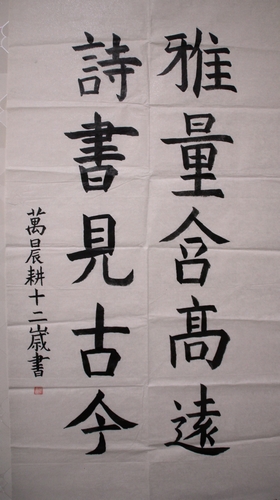 雅量含高遠
詩書見古今
萬晨耕十二歲書